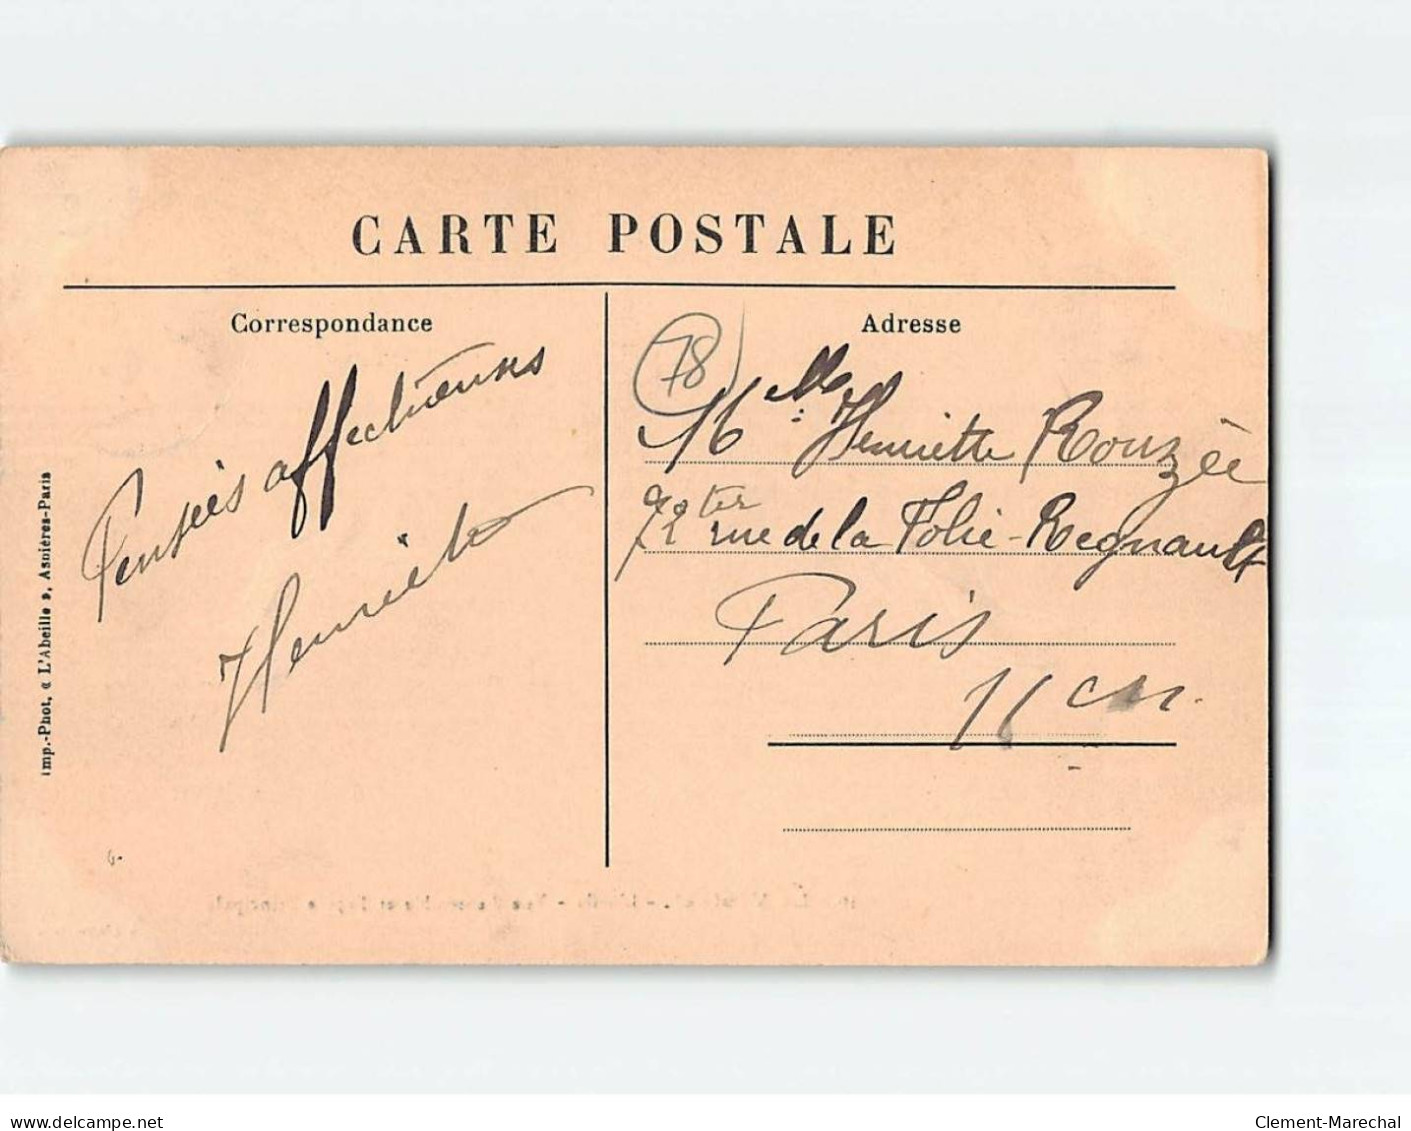 CARTE POSTALE
Correspondance
Adresse
78
Pensées affectueuses
Henriette
Mlle Henriette Rouzée
72 ter rue de la Folie-Regnault
Paris
11em
Imp.-Phot. « L'Abeille », Asnières-Paris
www.delcampe.net
Clement-Marechal